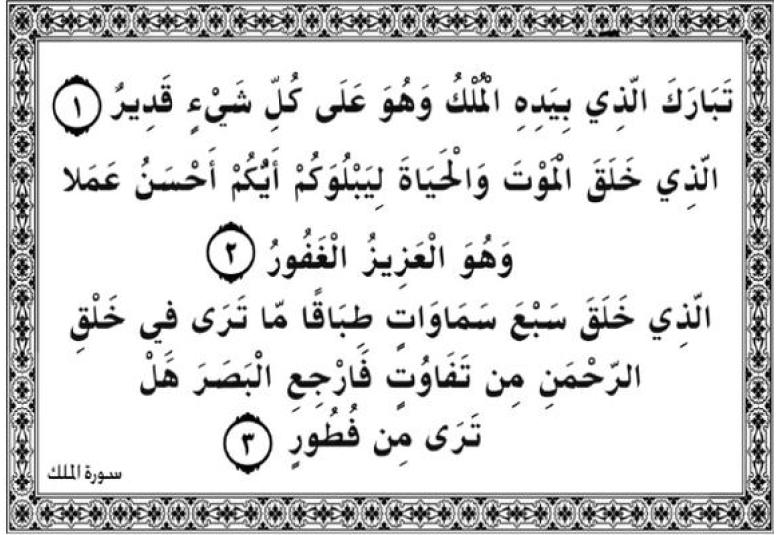 تَبَارَكَ الَّذِي بِيَدِهِ الْمُلْكُ وَهُوَ عَلَى كُلِّ شَيْءٍ قَدِيرٌ ١
الَّذِي خَلَقَ الْمَوْتَ وَالْحَيَاةَ لِيَبْلُوَكُمْ أَيُّكُمْ أَحْسَنُ عَمَلا
وَهُوَ الْعَزِيزُ الْغَفُورُ ٢
الَّذِي خَلَقَ سَبْعَ سَمَاوَاتٍ طِبَاقًا مَّا تَرَى فِي خَلْقِ
الرَّحْمَنِ مِن تَفَاوُتٍ فَارْجِعِ الْبَصَرَ هَلْ
تَرَى مِن فُطُورٍ ٣
سورة الملك